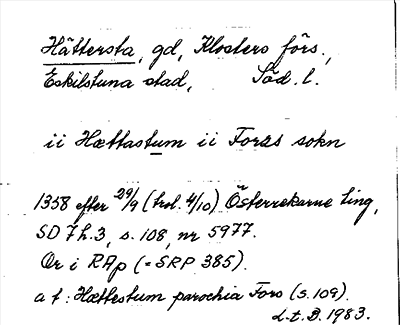 Hättersta, gd, Klosters förs.,
Eskilstuna stad, Söd. l.
ii Hættastum ii Foræs sokn
1358 efter 29/9 (trol. 4/10) Österrekarne ting,
SD 7 h.3, s. 108, nr 5977.
Or i RAp (= SRP 385).
a t : Hættestum parochia Foro (s. 109).
L.t.B. 1983.